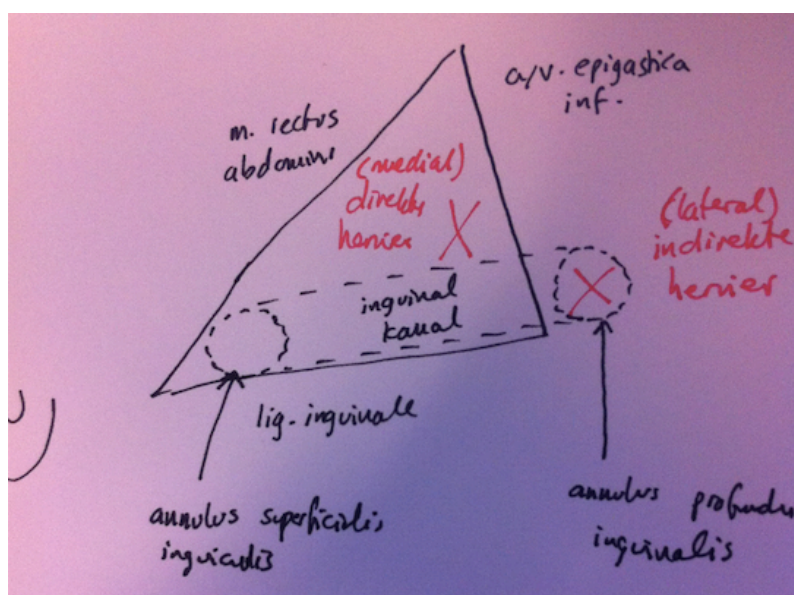 a/v. epigastica
inf.
m. rectus
abdomini
(medial)
direkte
hernier
(lateral)
indirekte
hernier
inguinal
kanal
lig. inguinale
annulus superficialis
inguinalis
annulus profundu
inguinalis